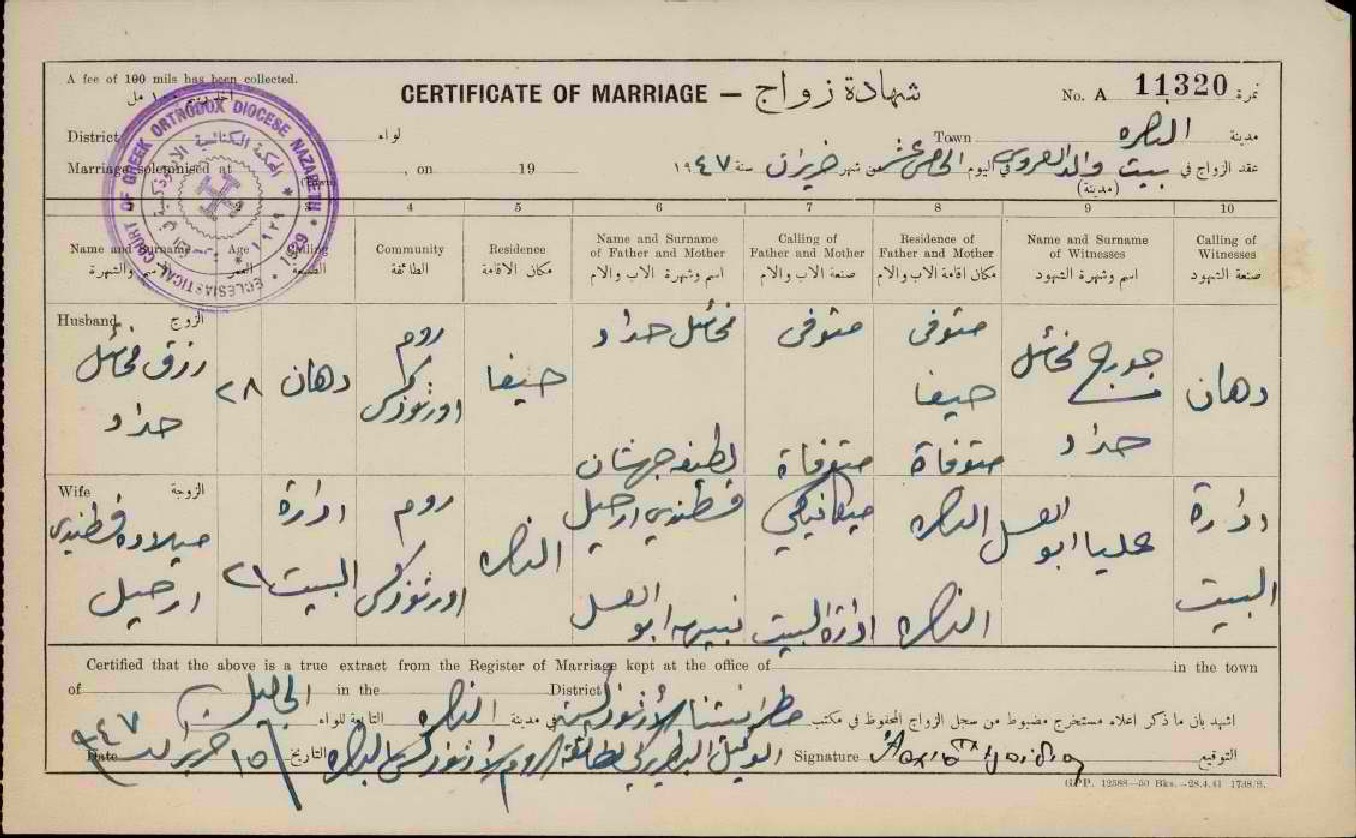 A fee of 100 mils has been collected.
CERTIFICATE OF MARRIAGE — شهادة زواج
No. A 11320 نمرة
District لواء
Town الناصرة مدينة
Marriage solemnised at , on 19
عقد الزواج في بيت والد العروس في اليوم الخامس عشر من شهر حزيران سنة ١٩٤٧
(مدينة)
ECCLESIASTICAL COURT OF GREEK ORTHODOX DIOCESE NAZARETH • 1929 •
3 4 5 6 7 8 9 10
Name and Surname الاسم والشهرة
Age العمر
Calling الصنعة
Community الطائفة
Residence مكان الاقامة
Name and Surname of Father and Mother اسم وشهرة الاب والام
Calling of Father and Mother صنعة الاب والام
Residence of Father and Mother مكان اقامة الاب والام
Name and Surname of Witnesses اسم وشهرة الشهود
Calling of Witnesses صنعة الشهود
Husband الزوج
رزق مخائيل حداد
٢٨
دهان
روم اورثوذكس
حيفا
مخائيل حداد
متوفى
متوفى
حيفا
جورج مخائيل حداد
دهان
لطيفه
متوفاة
متوفاة
Wife الزوجة
ميلادة قسطندي
٢١
ادارة البيت
روم اورثوذكس
الناصره
قسطندي
ميكانيكي
الناصره
عليا ابو العسل
ادارة البيت
نبيهه ابو العسل
ادارة البيت
الناصره
Certified that the above is a true extract from the Register of Marriage kept at the office of in the town
of in the District
اشهد بان ما ذكر اعلاه مستخرج مضبوط من سجل الزواج المحفوظ في مكتب مطرانيتنا الارثوذكسية في مدينة الناصره التابعة للواء الجليل
Date ١٥ حزيران سنة ٩٤٧ التاريخ
الوكيل البطريركي لطائفة الروم الارثوذكس بالناصره
Signature التوقيع
G.P.P. 12588—50 Bks.—28.4.41